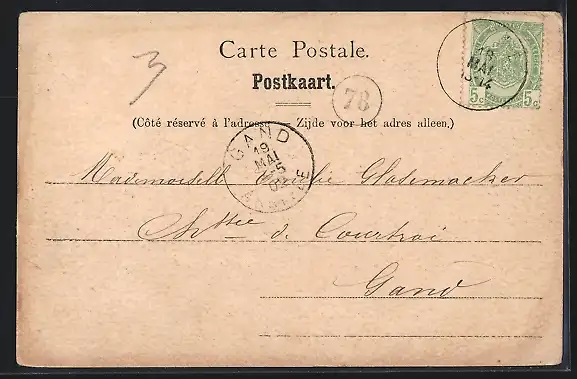 3
Carte Postale.
Postkaart.
78
(Côté réservé à l'adresse. — Zijde voor het adres alleen.)
19
MAI
13-14
5c 5c
GAND
19
MAI
15
ARRIVÉE
Mademoiselle Emilie Glasemaeker
Chssée de Courtrai
Gand